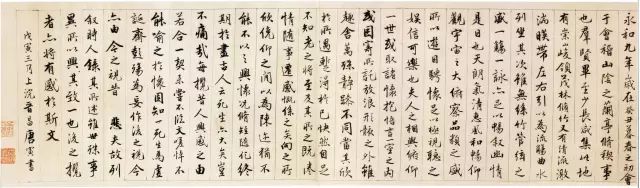 永和九年歲在癸丑暮春之初會
于會稽山陰之蘭亭脩稧事
也羣賢畢至少長咸集此地
有崇峻領茂林脩竹又有清流激
湍映帶左右引以為流觴曲水
列坐其次雖無絲竹管弦之
盛一觴一詠亦足以暢敘幽情
是日也天朗氣清惠風和暢仰
觀宇宙之大俯察品類之盛
所以遊目騁懷足以極視聽之
娛信可樂也夫人之相與俯仰
一世或取諸懷抱悟言一室之內
或因寄所託放浪形骸之外雖
趣舍萬殊靜躁不同當其欣
於所遇蹔得於己快然自足
不知老之將至及其所之既惓
情隨事遷感慨係之矣向之所
欣俛仰之閒以為陳迹猶不
能不以之興懷況脩短隨化終
期於盡古人云死生亦大矣豈
不痛哉每攬昔人興感之由
若合一契未嘗不臨文嗟悼不
能喻之於懷固知一死生為虛
誕齊彭殤為妄作後之視今
亦由今之視昔 悲夫故列
敘時人錄其所述雖世殊事
異所以興懷其致一也後之攬
者亦將有感於斯文
戊寅三月上沉晉昌唐寅書